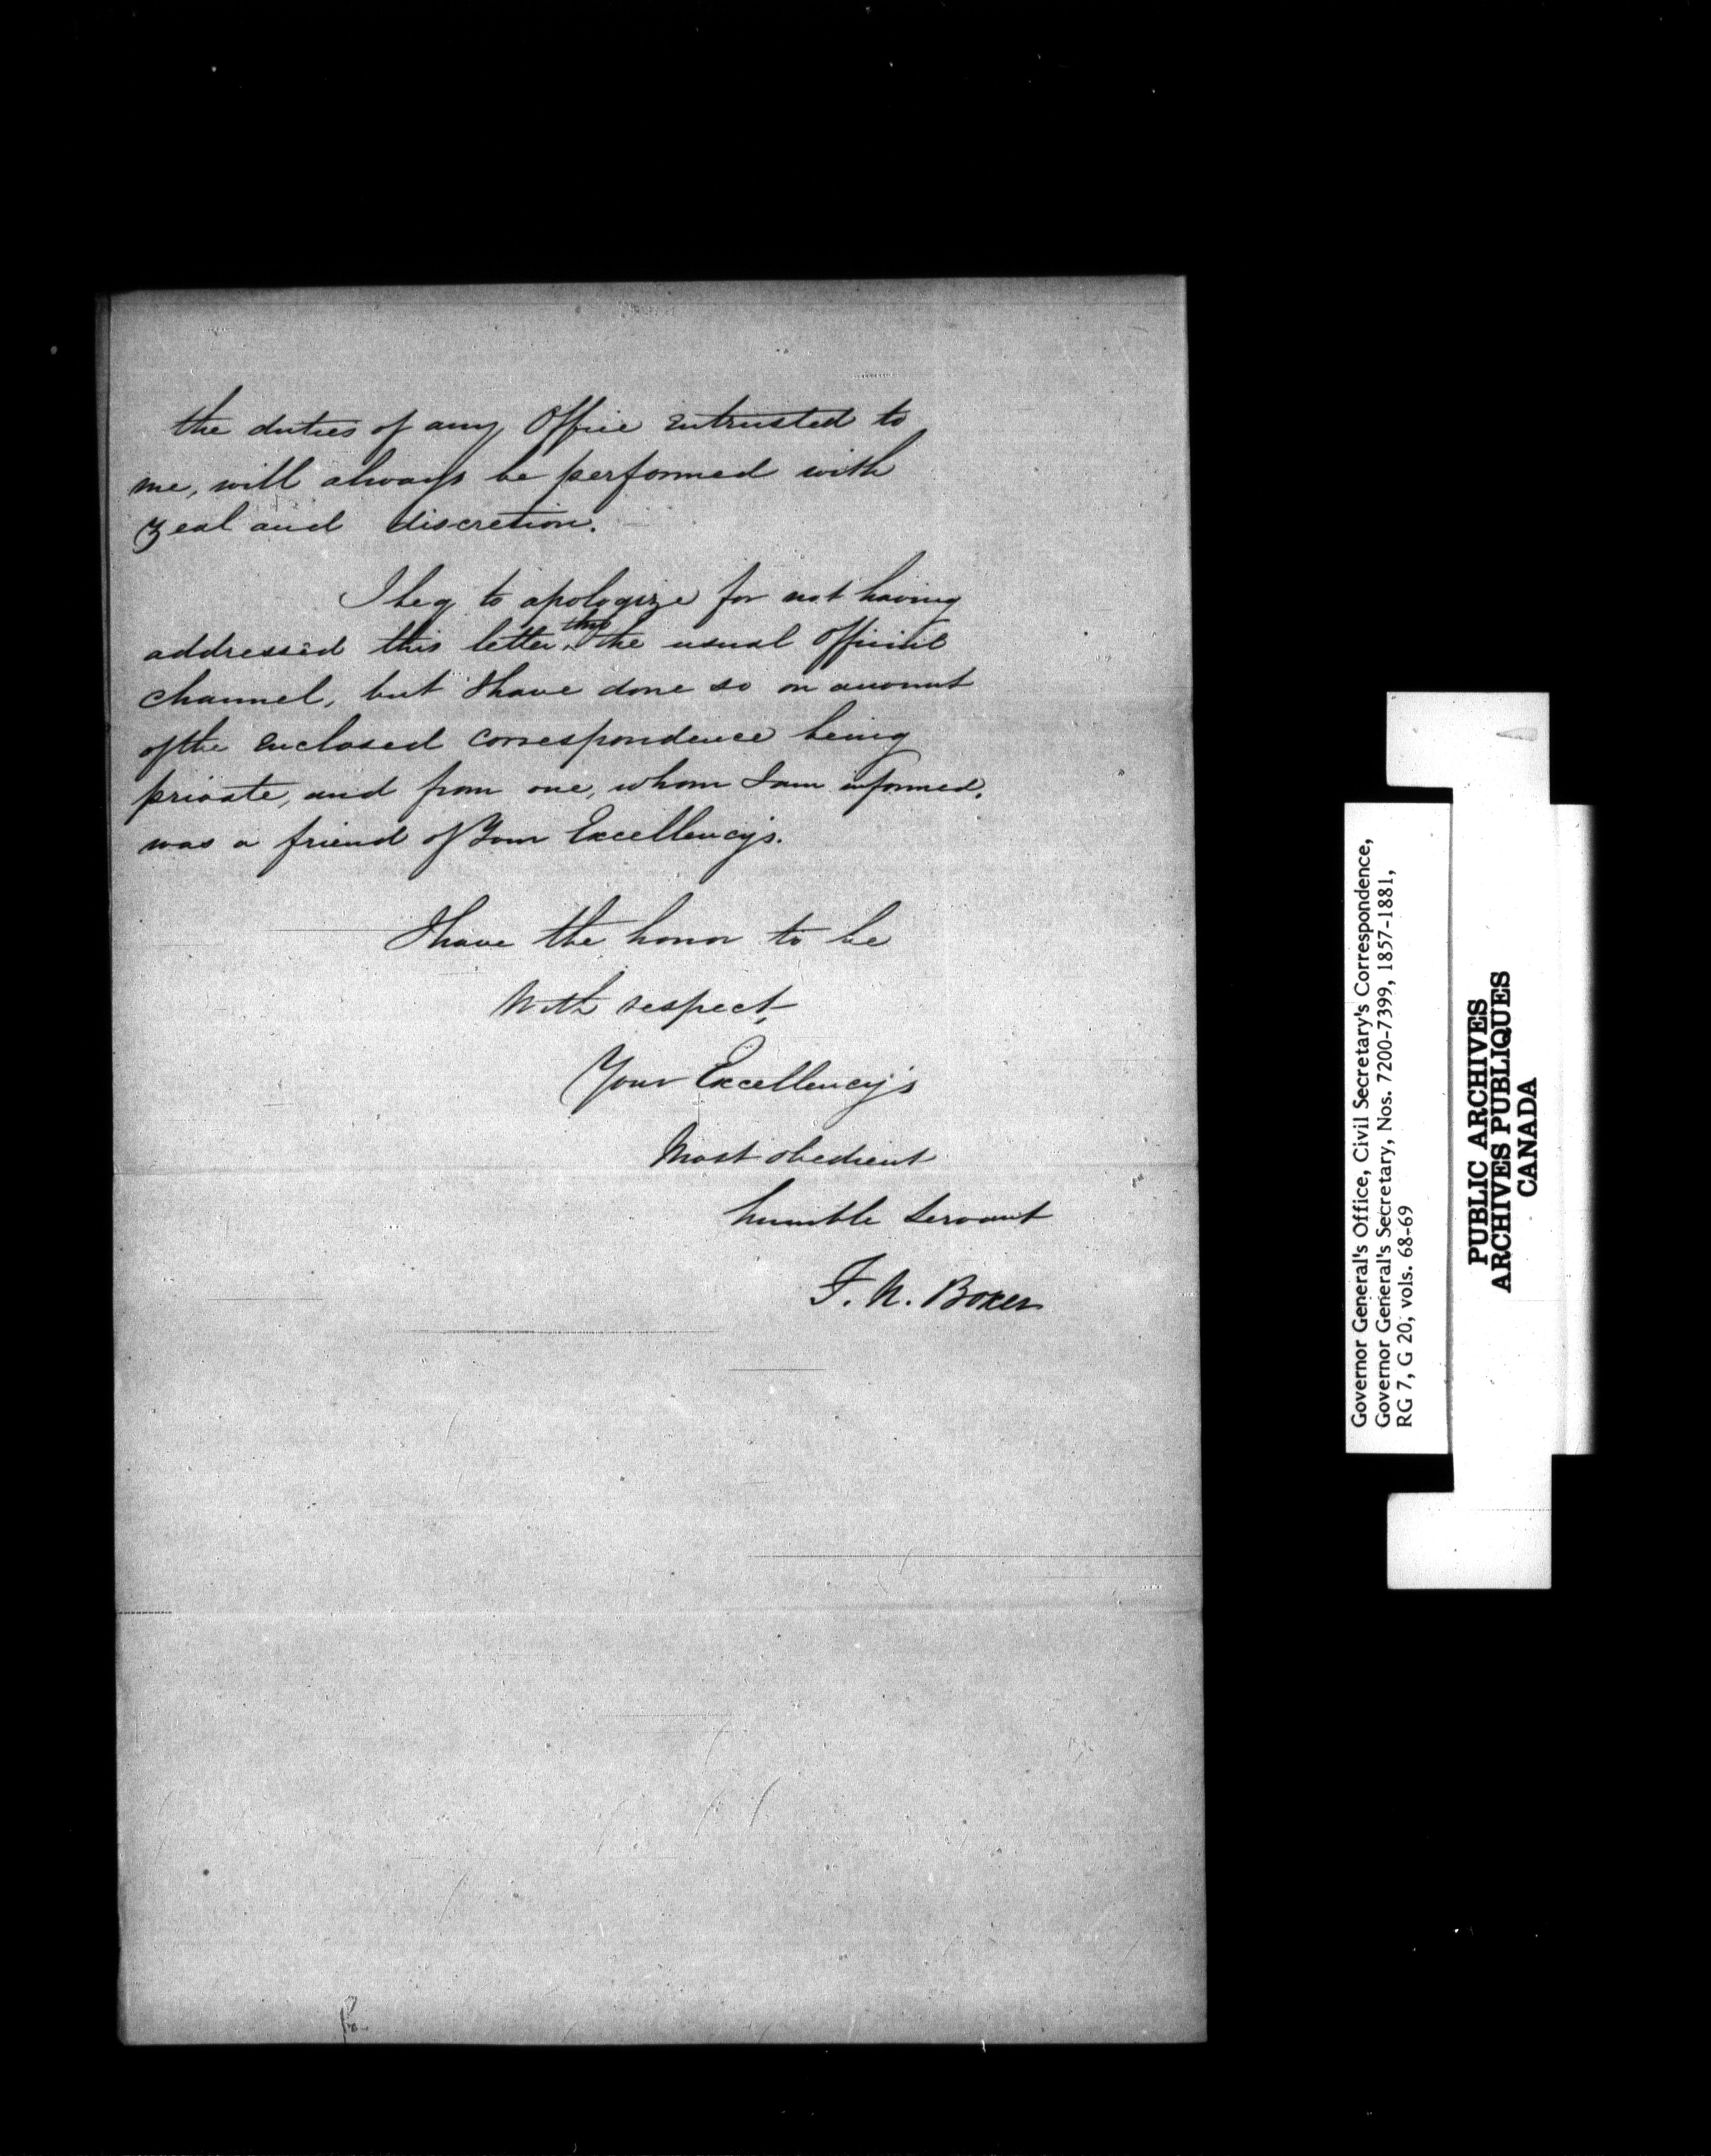 the duties of any Office entrusted to
me, will always be performed with
zeal and discretion.
I beg to apologize for not having
addressed this letter thro the usual Official
channel, but I have done so on account
of the enclosed correspondence being
private, and from one, whom I am informed,
was a friend of Your Excellency's.
I have the honor to be
With respect,
Your Excellency's
Most obedient
humble servant
F. N. Boxer
Governor General's Office, Civil Secretary's Correspondence,
Governor General's Secretary, Nos. 7200-7399, 1857-1881,
RG 7, G 20, vols. 68-69
PUBLIC ARCHIVES
ARCHIVES PUBLIQUES
CANADA